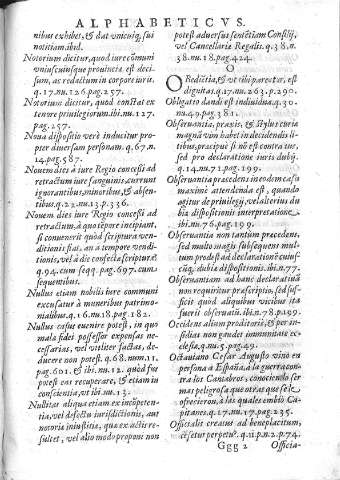 ALPHABETICVS.
nibus exhibes, & dat vnicuiq; sui
notitiam ibid.
Notorium dicitur, quod iure cōmuni
vniuscuiusque prouincia est deci-
sum, ac redactum in corpore iuris.
q.17.nu.126.pag.257.
Notorium dicitur, quod constat ex
tenore priuilegiorum.ibi.nu.127.
pag.257.
Noua dispositio verè inducitur pro-
pter diuersam personam. q.67.n.
14.pag.587.
Nouem dies à iure Regio concessi ad
retractum iure sanguinis, currunt
ignorantibus, minoribus, & absen-
tibus.q.22.nu.13.p.336.
Nouem dies iure Regio concessi ad
retractum, à quo tēpore incipiant,
si conuenerit quod scriptura ven-
ditionis fiat, an a tempore vendi-
tionis, vel à die confectæ scripturæ
q.94. cum seqq. pag.697. cum
sequentibus.
Nullus etiam nobilis iure communi
excusatur à muneribus patrimo-
nialibus.q.16.nu.18.pag.182.
Nullus casus euenire potest, in quo
mala fidei possessor expensas ne-
cessarias, vel vtiliter factas, de-
ducere non potest. q.68.num.11.
pag.601. & ibi nu.12. quod sic
potest eas recuperare, & etiam in
conscientia, vt ibi nu.13.
Nullitas aliqua etiam ex incōpeten-
tia, vel defectu iurisdictionis, aut
notoria iniustitia, quæ ex actis re-
sultet, vel alio modo proponi non
potest aduersus sentētiam Consilij,
vel Cancellariæ Regalis. q.38.n.
38.nu.18.pag.424.
O
OBedictia, & vt ibi paretur, est
dignitas.q.17.nu.263.p.290.
Obligatio dandi est indiuidua.q.30.
nu.49.pag.381.
Obseruantia, praxis, & stylus curiæ
magnā vim habet in decidendis li-
tibus, præcipuè si nō est contra ius,
sed pro declaratione iuris dubij.
q.14.nu.71.pag.199.
Obseruantia præcedens in eodem casu
maximè attendenda est, quando
agitur de priuilegij, vel alterius du-
bia dispositionis interpretatione.
ibi.nu.76.pag.199.
Obseruantia non tantum præcedens,
sed multo magis subsequens mul-
tum prodest ad declarationē cuius-
cūq; dubiæ dispositionis.ibi.n.77.
Obseruantiam ad hanc declarationē
non requiritur præscriptio, sed suf-
ficit quod aliquibus vicibus ita
fuerit obseruatū ibi.n.78.p.199.
Occidens alium proditoriè, & per in-
sidias non gaudet immunitate ec-
clesiæ, q.nu.5.pag.49.
Octauiano Cesar Augusto vino en
persona à España, à la guerra con-
tra los Cantabros, conociendo ser
mas peligrosa que otras que se le
ofrecieron, à las quales embiò Ca-
pitanes.q.17.nu.17.pag.235.
Officialis creatus ad beneplacitum,
cēsetur perpetu⁹. q.11.p.n.2.p.74.
Ggg 2
Officia-